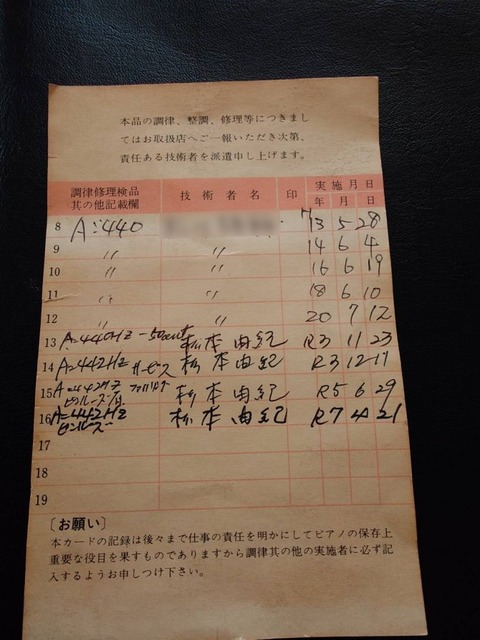 本品の調律、整調、修理等につきまし
てはお取扱店へご一報いただき次第、
責任ある技術者を派遣申し上げます。
調律修理検品 其の他記載欄 技術者名 印 実施月日 年 月 日
8 A=440 13 5 28
9 〃 〃 14 6 4
10 〃 〃 16 6 19
11 〃 〃 18 6 10
12 〃 〃 20 7 12
13 A=440HZ -50cent 松本由紀 R3 11 23
14 A=442HZ サービス 松本由紀 R3 12 17
15 A=442HZ 松本由紀 R5 6 29
16 A=442HZ 松本由紀 R7 4 21
17
18
19
〔お願い〕
本カードの記録は後々まで仕事の責任を明かにしてピアノの保存上
重要な役目を果すものでありますから調律其の他の実施者に必ず記
入するようお申しつけ下さい。